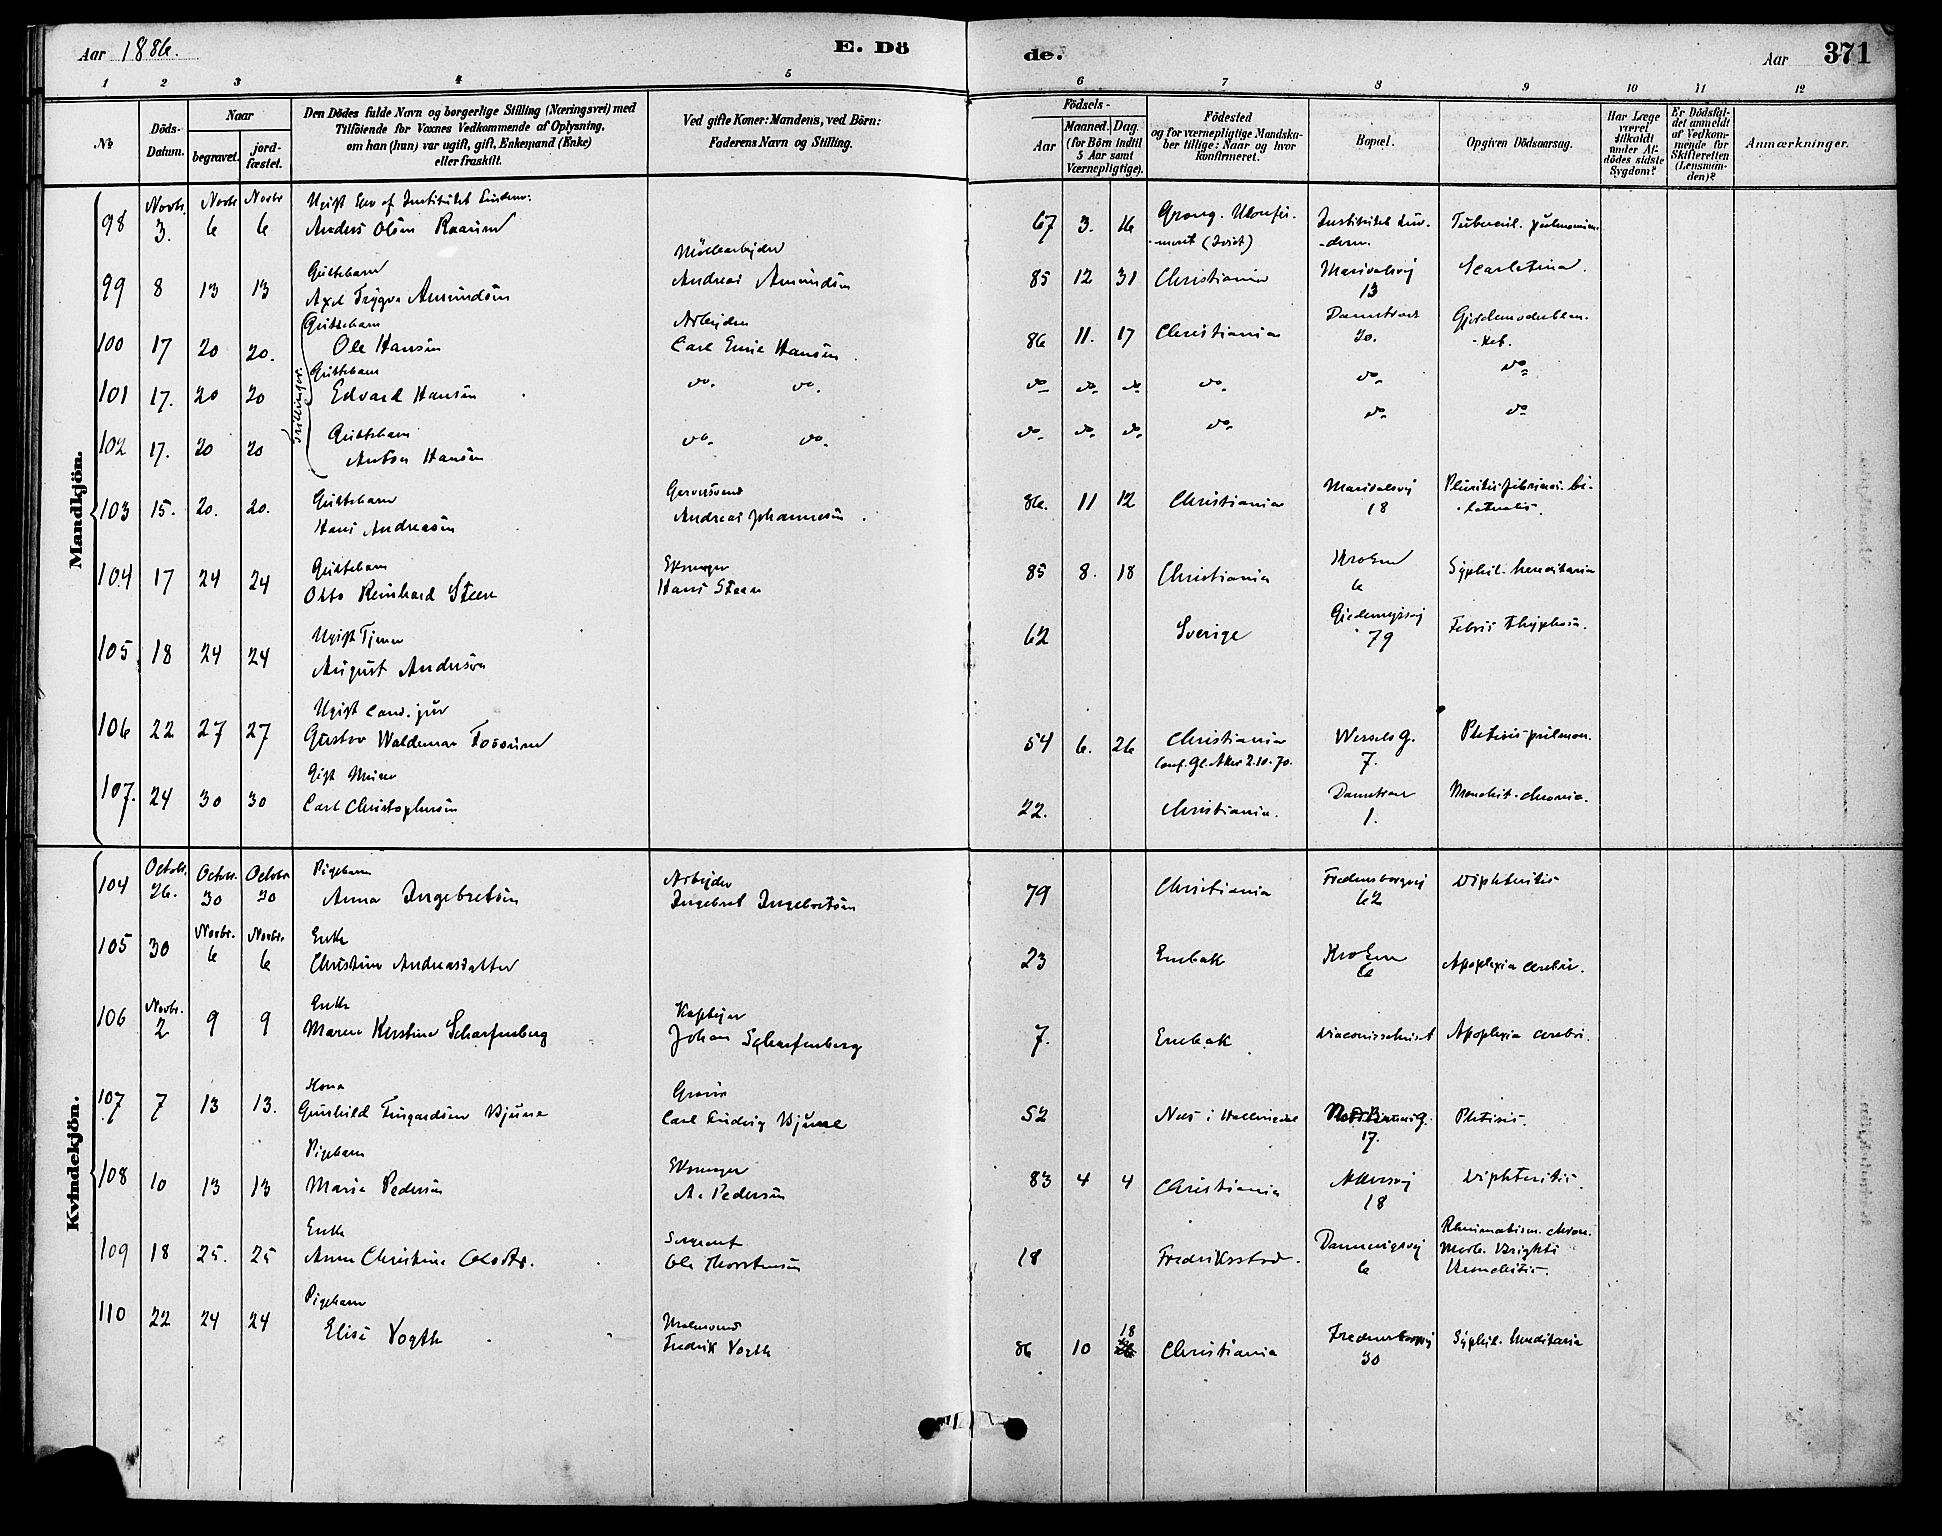 Aar 1886.
E. Dö
de.
Aar
371
1 2 3 4 5 6 7 8 9 10 11 12
No
Döds-Datum.
Naar
begravet.
jord-fæstet.
Den Dödes fulde Navn og borgerlige Stilling (Næringsvei) med
Tilföiende for Voxnes Vedkommende af Oplysning,
om han (hun) var ugift, gift, Enkemand (Enke)
eller fraskilt.
Ved gifte Koner: Mandens, ved Börn:
Faderens Navn og Stilling.
Födsels-
Aar
Maaned. Dag.
(for Börn indtil
5 Aar samt
Værnepligtige).
Födested
og for værnepligtige Mandska-
ber tillige: Naar og hvor
konfirmeret.
Bopæl.
Opgiven Dödsaarsag.
Har Læge
været
tilkaldt
under Af-
dödes sidste
Sygdom?
Er Dödsfal-
det anmeldt
af Vedkom-
mende for
Skifteretten
(Lensman-
den)?
Anmærkninger.
Mandkjön.
98 Novbr. 3. Novbr 6 Novbr 6 Anders Olsen 67 3. 16 Tubercul. pulmonum
99 8 13 13 Guttebarn Axel Trygve Amundsen Möllearbejder Andreas Amundsen 85 12 31 Christiania Maridalsvej 13 Scarlatina.
Trillinger.
100 17 20 20. Guttebarn Ole Hansen Arbejder Carl Emil Hansen. 86 11. 17 Christiania 20.
101 17. 20 20 Guttebarn Edvard Hansen do. do. do. do. do. do. do. do.
102 17. 20 20 Guttebarn Anton Hansen do. do. do. do. do. do. do. do
103 15. 20. 20. Guttebarn Hans Andreasen Andreas Johannesen. 86. 11 12 Christiania Maridalsvej 18
104 17 24 24 Guttebarn Otto Reinhard Steen Hans Steen 85 8. 18 Christiania 6 Syphil. hereditaria
105 18 24 24 Ugift Tjener August Anderson 62 Sverige 79 Febris thyphoid.
106 22 27 27 Ugift Cand. jur Gustav Waldemar Fossum 54 6. 26 Christiania Conf. Gl. Aker 2.10.70. Wessels G. 7. Phtisis pulmon.
107. 24 30 30 Gift Murer Carl Christophersen 22. Christiania. 1.
Kvindekjön.
104 Octobr. 26. Octobr. 30 Octobr 30 Pigebarn Anna Ingebretsen Arbejder Ingebret Ingebretsen 79 Christiania Fredensborgvej 62 Diphteritis
105 30 Novbr. 6 Novbr. 6 Enke Christine Andreasdatter 23 Enebak 6 Apoplexia cerebri.
106 Novbr. 2 9 9 Enke Maren Kerstine Scharfenberg Johan Scharfenberg 7. Enebak Apoplexia cerebri.
107 7 13 13. Kona Gunhild Carl Ludvig 52 Næs i Hallingdal 17. Phtisis.
108 10 13 13 Pigebarn Maria Pedersen A. Pedersen 83 4 4 Christiania Akersvej 18 Diphteritis.
109 18 25. 25 Enke Anne Christine Olsdtr. Sergeant Ole Thorstensen 18 Fredriksstad. Dannevigsvej 6 Rheumatism. chron. Morb. Brightii Bronchitis.
110 22 24 24 Pigebarn Elise Vogth Malersvend Fredrik Vogth 86 10 18 Christiania Fredensborgvej 30 Syphil. hereditaria